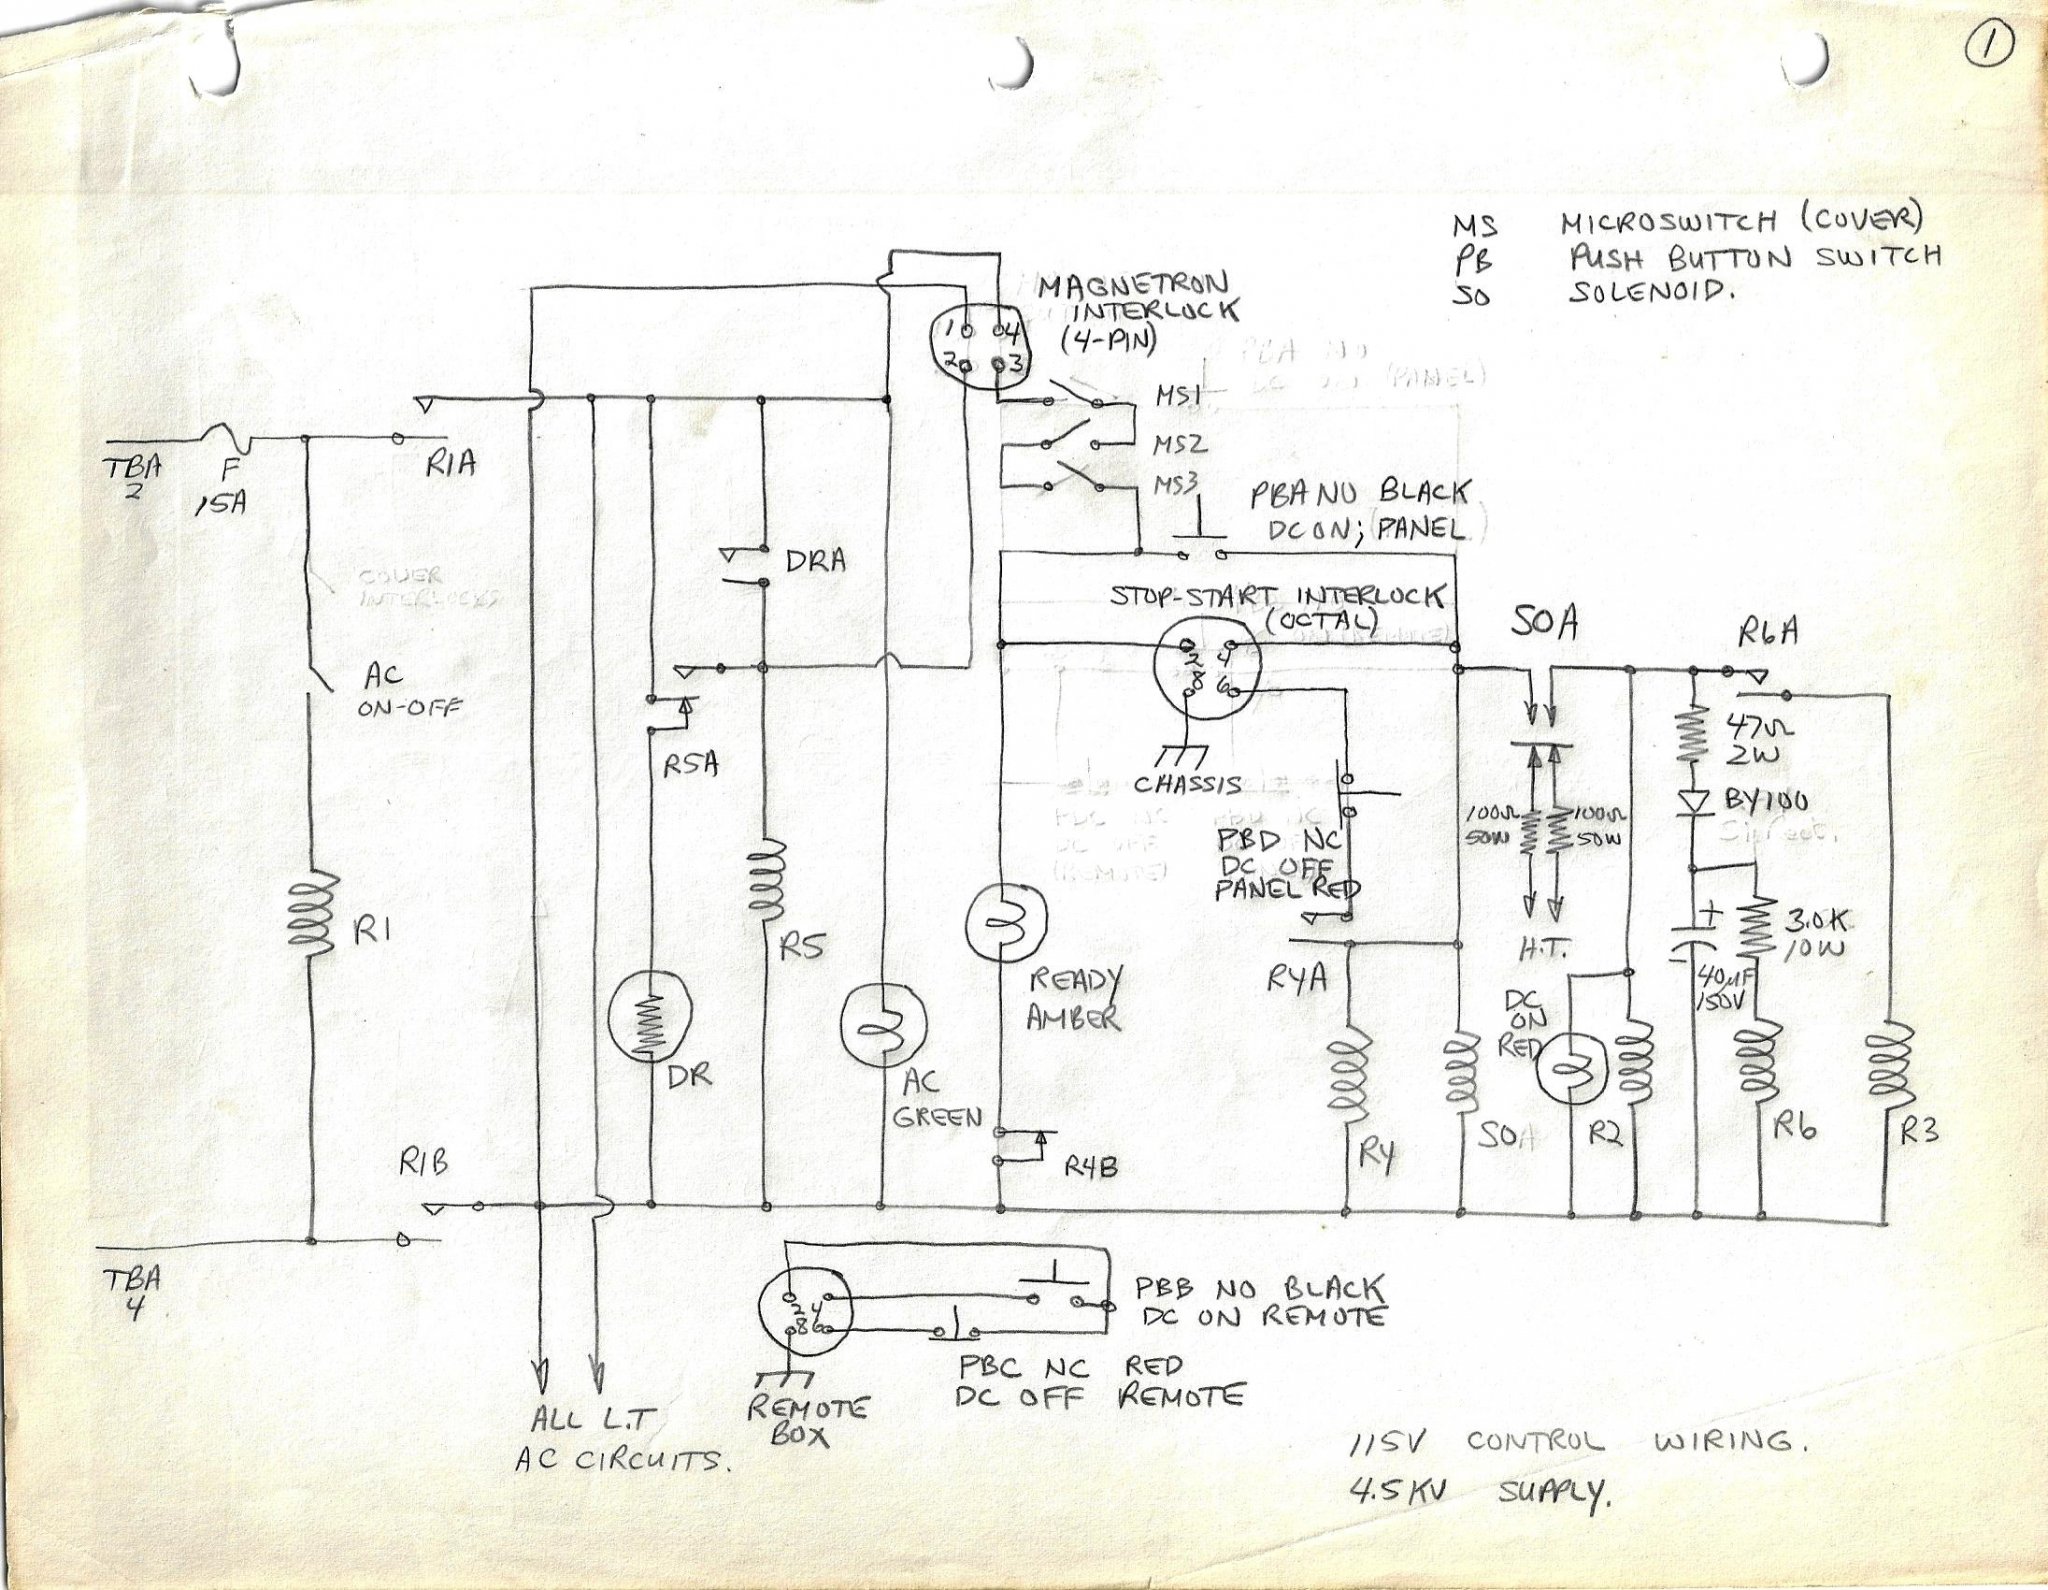 1
MS MICROSWITCH (COVER)
PB PUSH BUTTON SWITCH
SO SOLENOID.
MAGNETRON
INTERLOCK
(4-PIN)
1 4
2 3
MS1
MS2
MS3
TBA
2
F
15A
R1A
PBA NO BLACK
DC ON; PANEL
DRA
COVER
INTERLOCKS
STOP-START INTERLOCK
(OCTAL)
2 4
8 6
SOA
R6A
AC
ON-OFF
R5A
CHASSIS
47Ω
2W
BY100
100Ω
50W
100Ω
50W
PBD NC
DC OFF
PANEL RED
R1
R5
+
-
3.0K
10W
H.T.
READY
AMBER
R4A
40µF
150V
DC
ON
RED
DR
AC
GREEN
R4B
R4
SOA
R2
R6
R3
R1B
TBA
4
2 4
8 6
PBB NO BLACK
DC ON REMOTE
PBC NC RED
DC OFF REMOTE
REMOTE
BOX
ALL L.T
AC CIRCUITS.
115V CONTROL WIRING.
4.5KV SUPPLY.